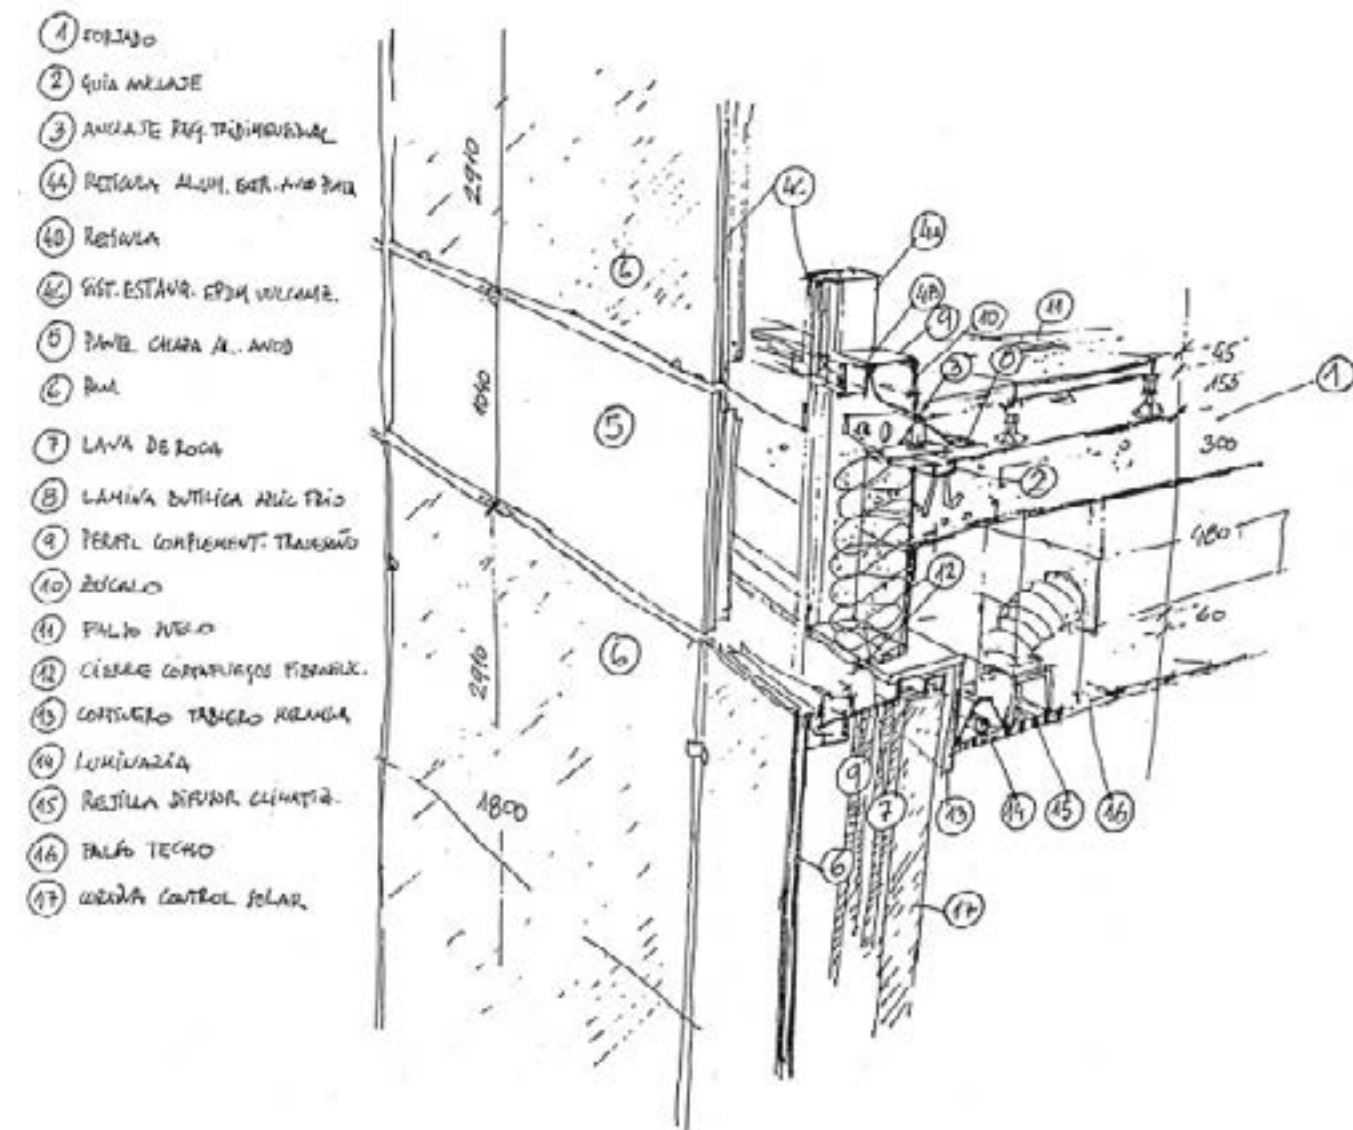 1 FORJADO
2 GUIA ANCLAJE
3 ANCLAJE REG. TRIDIMENSIONAL
4A RETICULA ALUM. EXTR. ANOD
4B RETICULA
4C SIST. ESTANQ. EPDM VULCANIZ.
5 PANEL CHAPA AL. ANOD
6
7 LANA DE ROCA
8 LAMINA BUTILICA FRIO
9 PERFIL COMPLEMENT. TRAVESAÑO
10 ZOCALO
11 FALSO SUELO
12 CIERRE CORTAFUEGOS
13 CORTINERO TABLERO
14 LUMINARIA
15 REJILLA DIFUSOR CLIMATIZ.
16 FALSO TECHO
17 CORTINA CONTROL SOLAR
2910
6
4C
4A
4B
9
10
11
3
8
45
155
1
1040
5
300
2
480
12
60
2910
6
1800
9
7
13
14
15
16
6
17